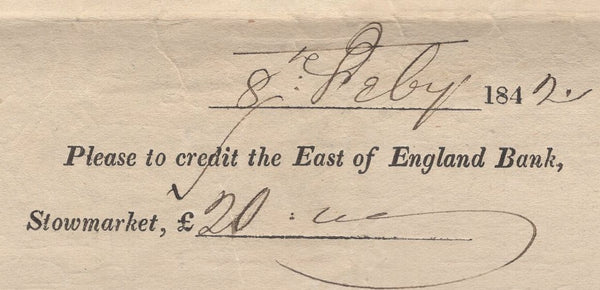 8th Feby 1842.
Please to credit the East of England Bank,
Stowmarket, £20: